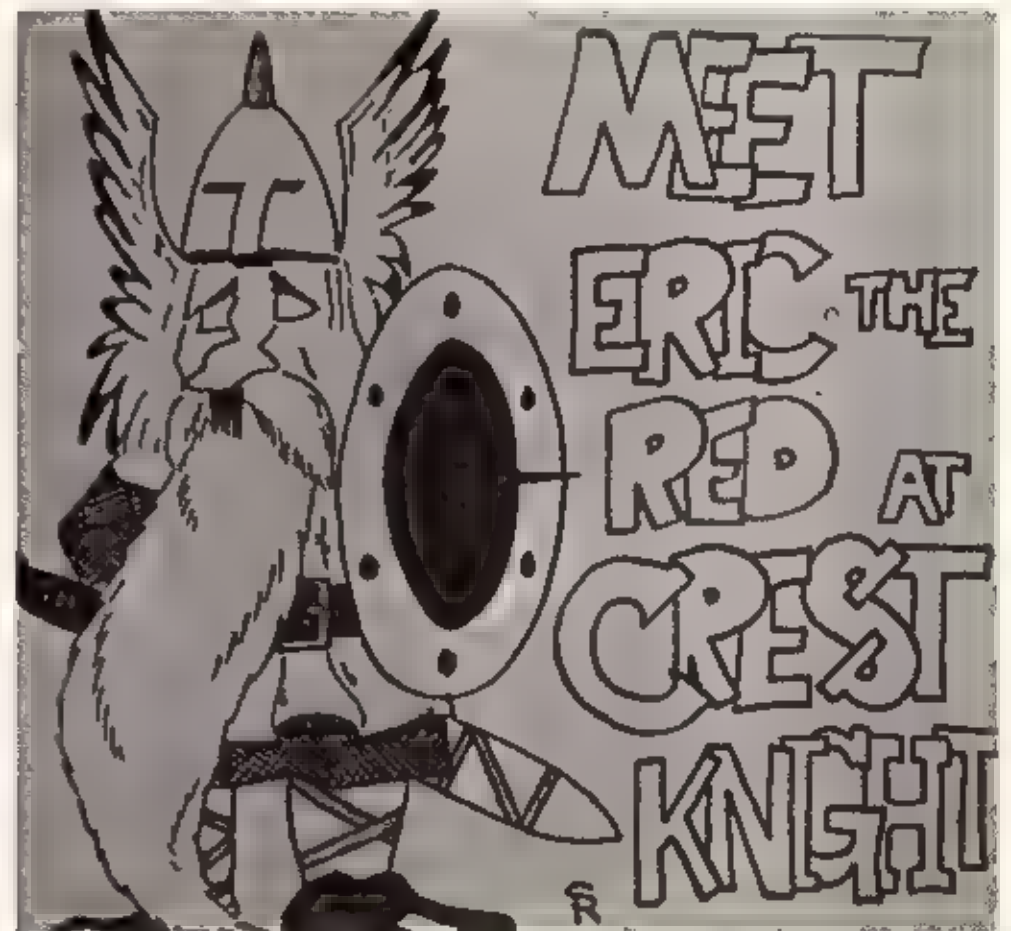 MEET
ERIC THE
RED AT
CREST
KNIGHT
SR